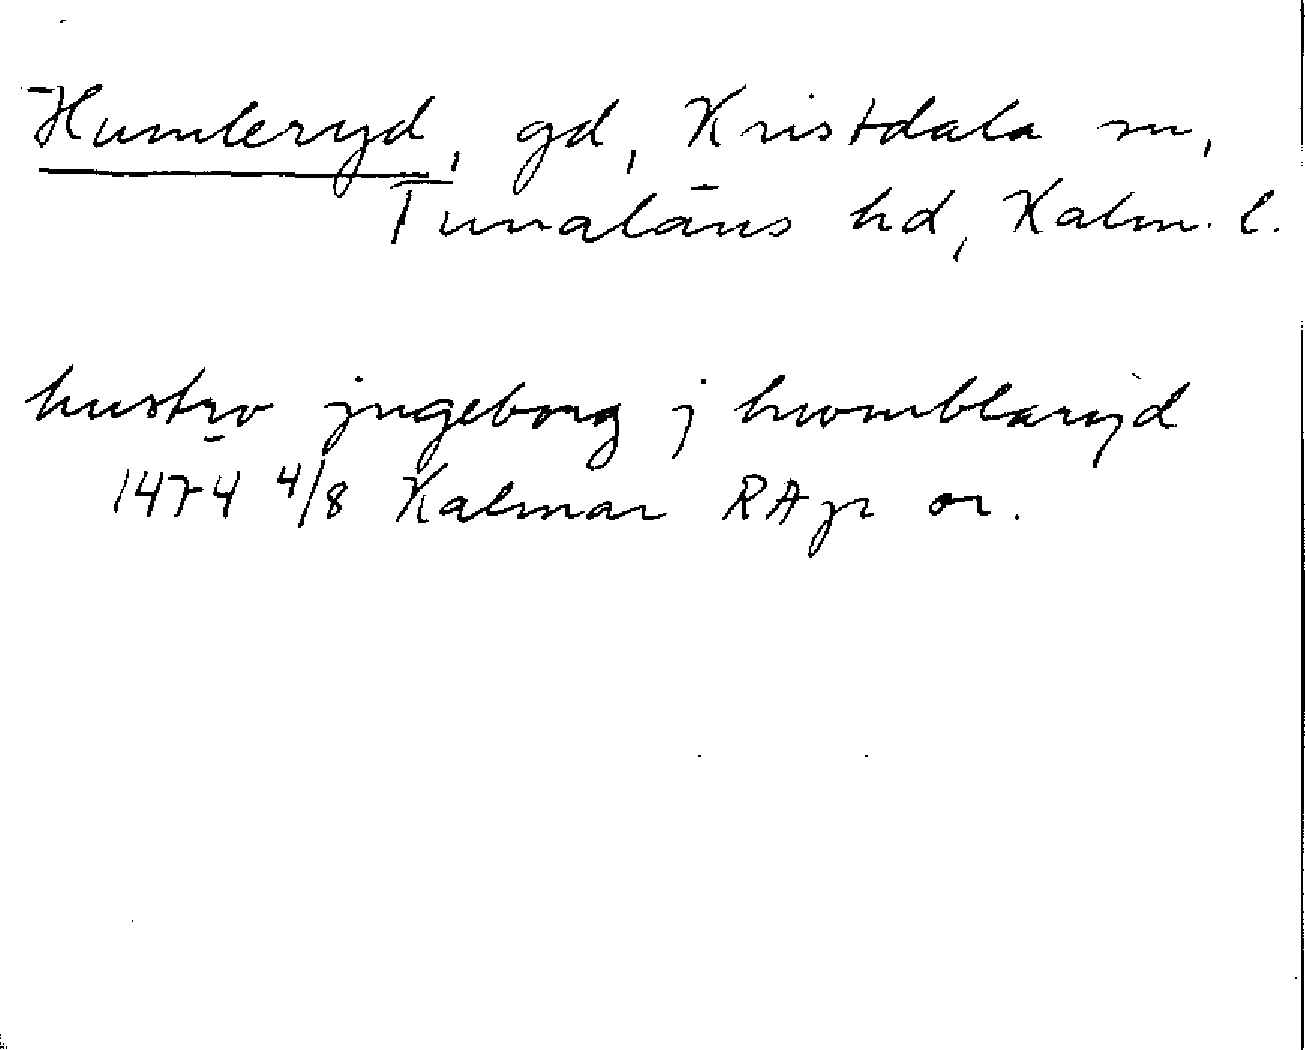 Humleryd, gd, Kristdala sn,
Tunaläns hd, Kalm. l.
hustro jngeborg j hwomblaryd
1474 4/8 Kalmar RAp or.